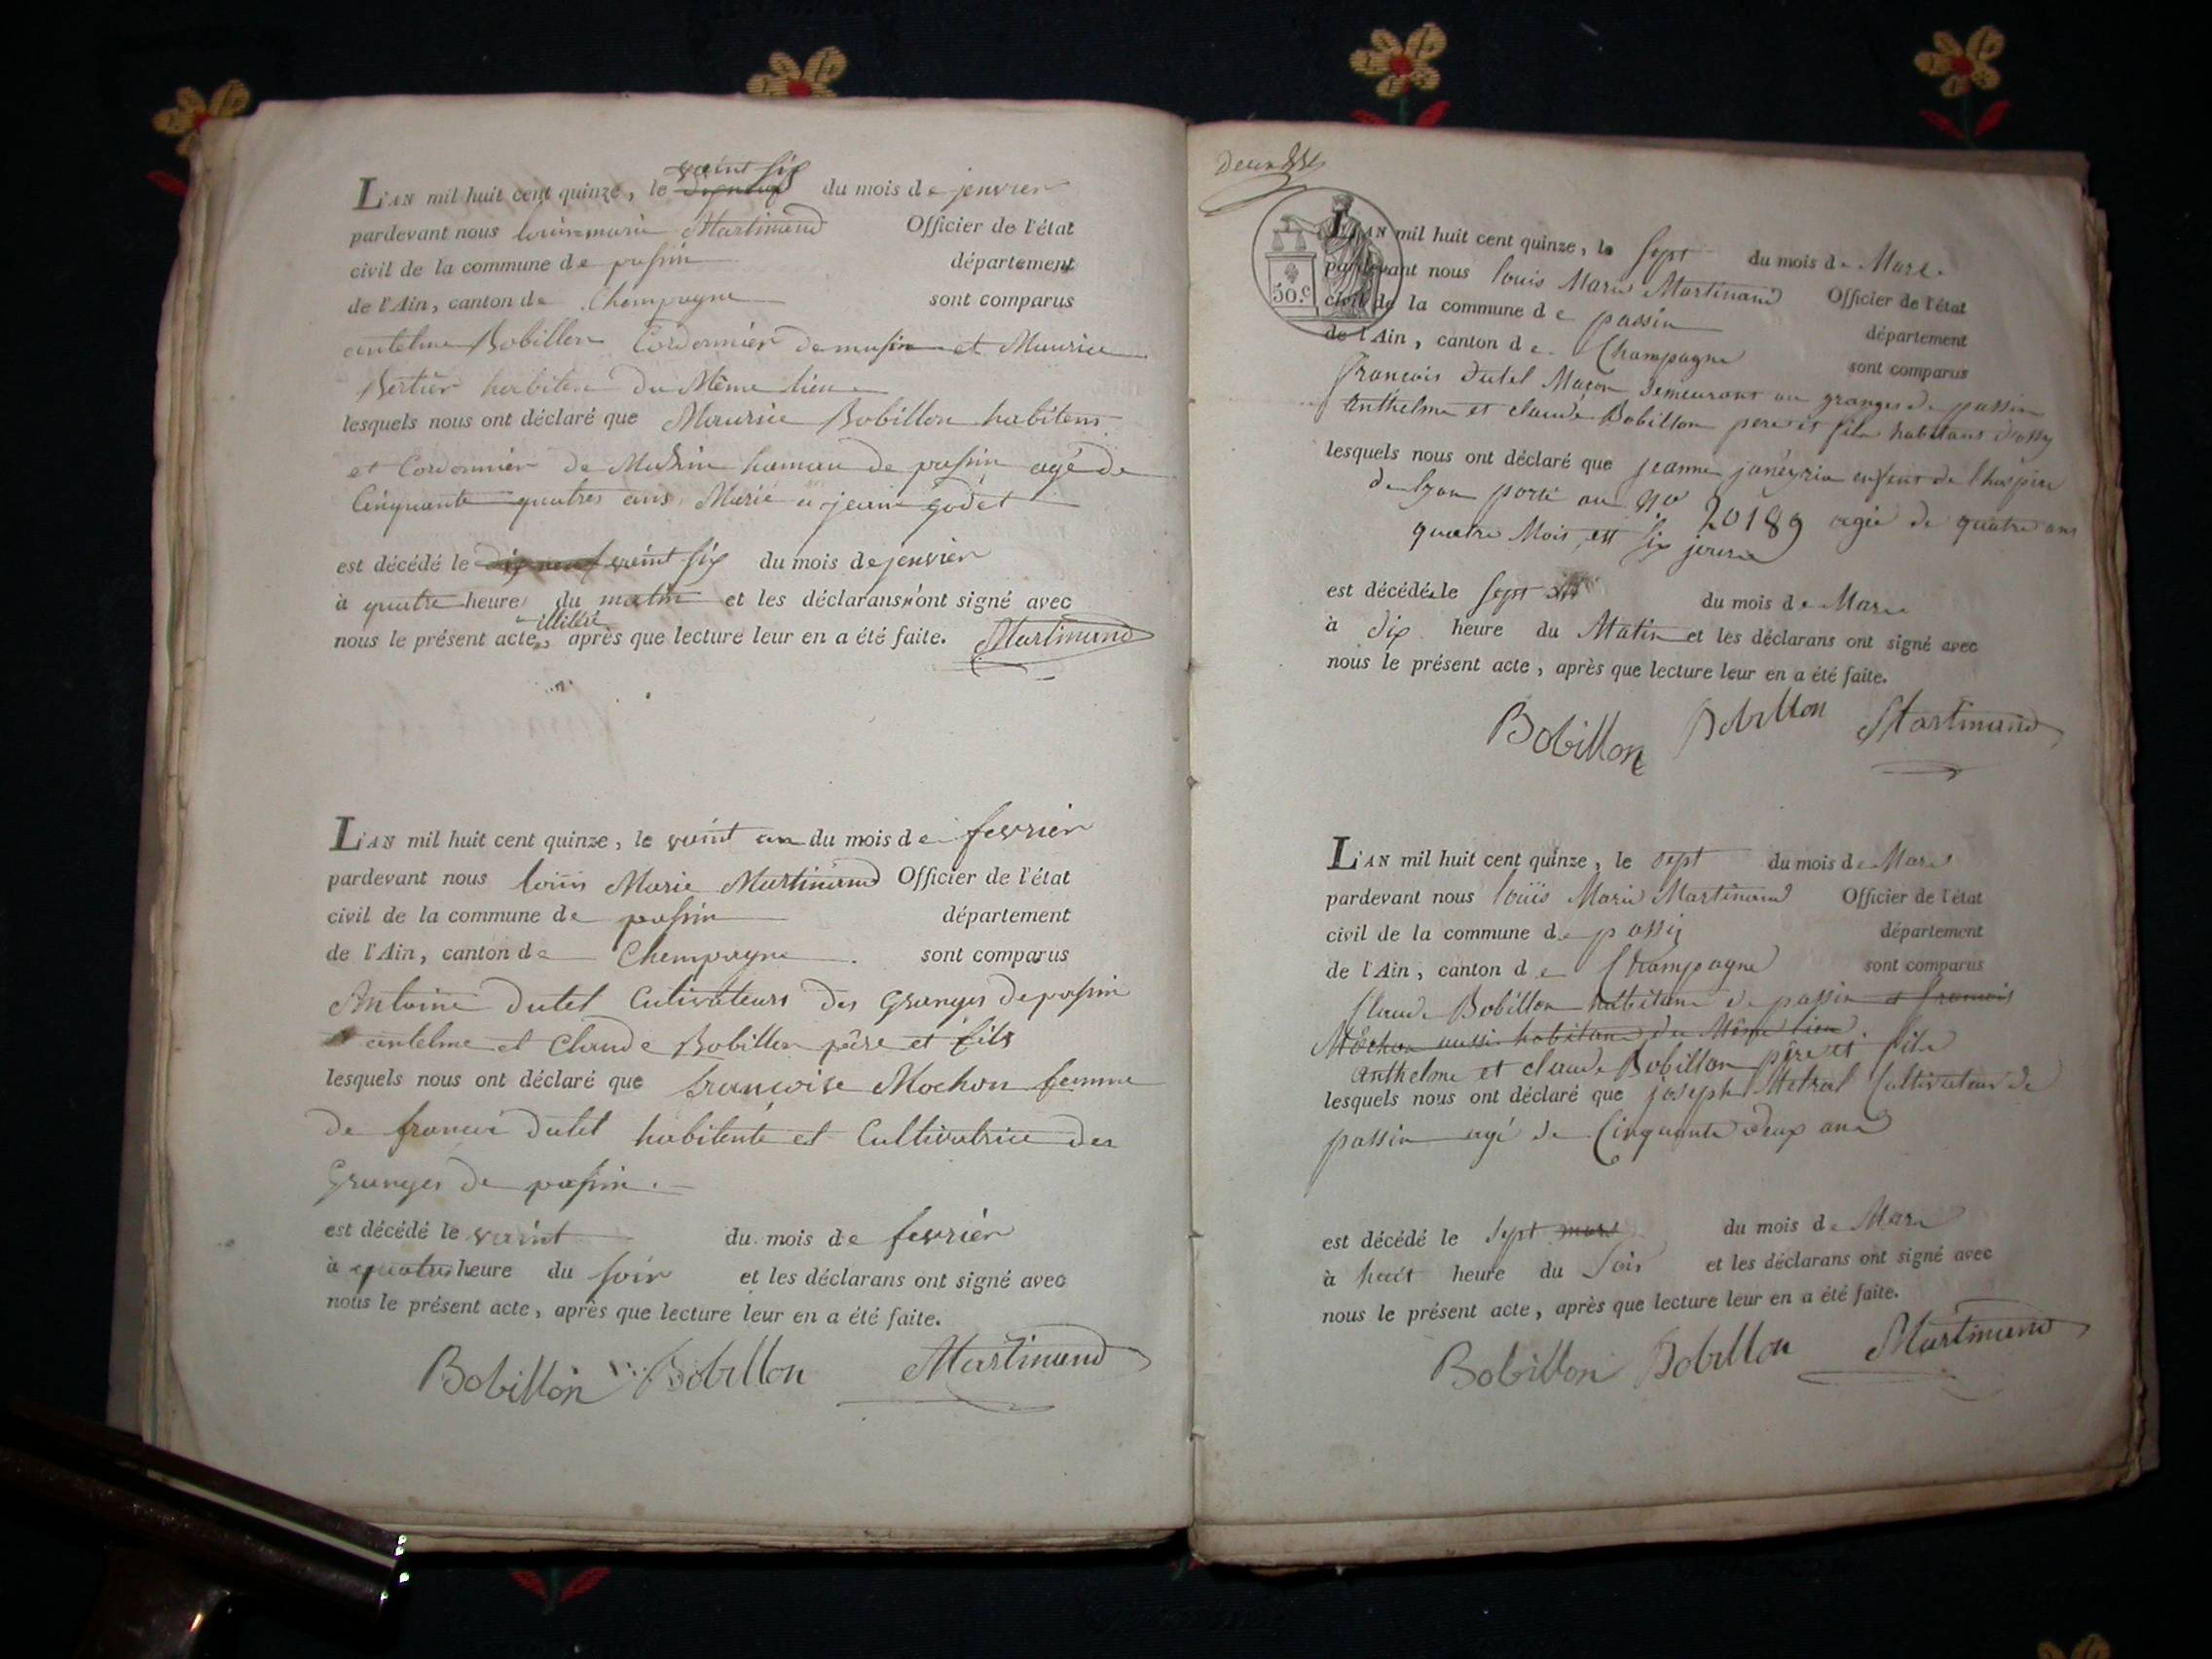 vaint six
L'AN mil huit cent quinze, le dixneuf du mois de jenvier
pardevant nous louis marie Martinand Officier de l'état
civil de la commune de passin département
de l'Ain, canton de Chempagne sont comparus
antelme Bobillon Cordonnier de musin et Maurice
Bertier habiten du Même lieu
lesquels nous ont déclaré que Maurice Bobillon habitens
et Cordonnier de Musin hamau de passin agé de
Cinquante quatres ans Marié a jean godet
est décédé le dix neuf vaint six du mois de jenvier
à quatre heure du matin et les déclarans n'ont signé avec
illitéré
nous le présent acte, après que lecture leur en a été faite. Martinand
L'AN mil huit cent quinze, le vaint un du mois de fevrier
pardevant nous louis Marie Martinand Officier de l'état
civil de la commune de passin département
de l'Ain, canton de Chempagne sont comparus
Antoine dutel Cutivateurs des Granges de passin
antelme et Claude Bobillon père et fils
lesquels nous ont déclaré que francoise Mochon femme
de francoi dutel habitente et Cultivatrice des
Granges de passin.
est décédé le vaint du mois de fevrier
à quatres heure du soir et les déclarans ont signé avec
nous le présent acte, après que lecture leur en a été faite.
Bobillon Bobillon Martinand
50.c
L'AN mil huit cent quinze, le sept du mois de Mars
pardevant nous louis Marie Martinand Officier de l'état
civil de la commune de passin département
de l'Ain, canton de Champagne sont comparus
francois dutel Maçon demeurant au granges de passin
Anthelme et claude Bobillon pere et fils habitans
lesquels nous ont déclaré que jeanne enfent de l'hospice
de lyon porté au no 20189 agée de quatre ans
quatre Mois est six jours
est décédée le sept du mois de Mars
à dix heure du Matin et les déclarans ont signé avec
nous le présent acte, après que lecture leur en a été faite.
Bobillon Bobillon Martinand
L'AN mil huit cent quinze, le sept du mois de Mars
pardevant nous louis Marie Martinand Officier de l'état
civil de la commune de passin département
de l'Ain, canton de Champagne sont comparus
Claude Bobillon habitans de passin et francois
Mochon aussi habitans du Même lieu.
Anthelme et claude Bobillon père et fils
lesquels nous ont déclaré que joseph Metral Cultivateur de
passin agé de Cinquante deux ans
est décédé le sept mars du mois de Mars
à huit heure du Soir et les déclarans ont signé avec
nous le présent acte, après que lecture leur en a été faite.
Bobillon Bobillon Martinand